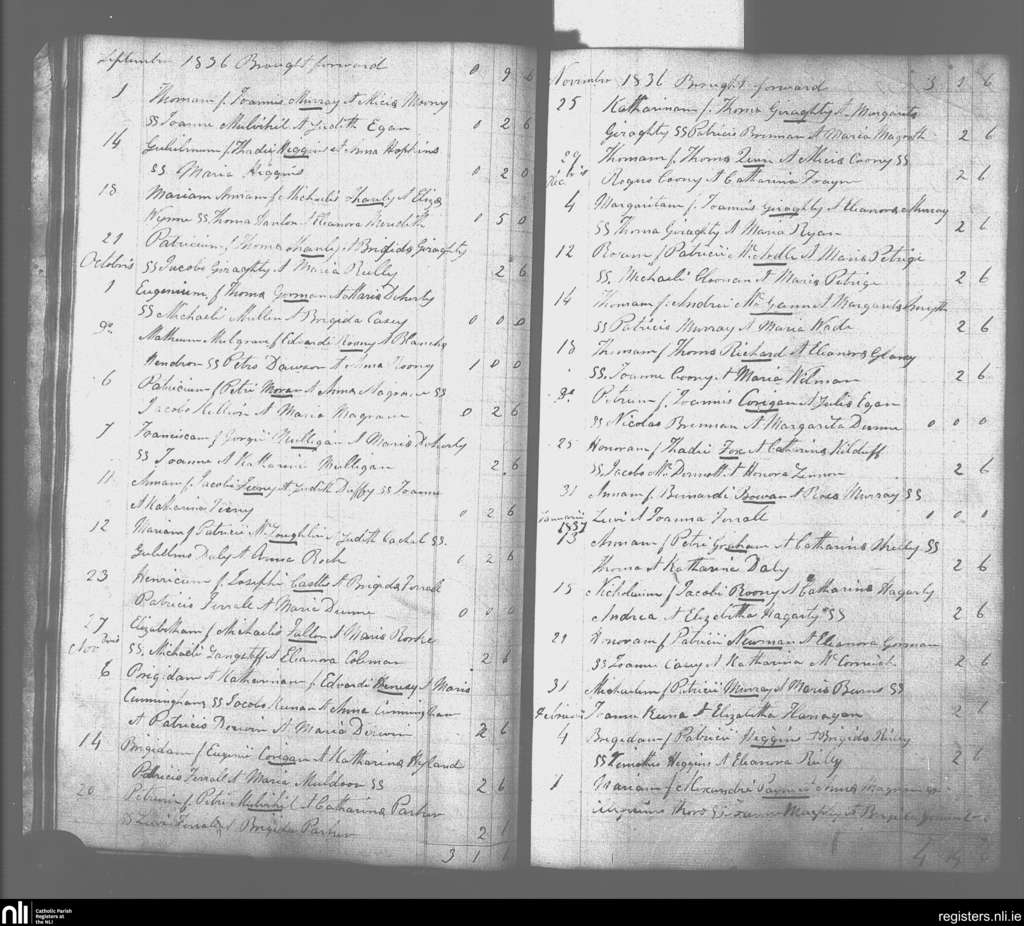 September 1836 Brought forward 0 9 6
1 Thomam f. Joannis Murray & Alicia Moony
SS Joanne Mulvihil & Judith Egan 0 2 6
14 Gulielmum f. Thadii Higgins et Anna Hopkins
SS. Maria Higgins 0 2 0
18 Mariam Annam f. Michaelis Hanly & Eliza
Wynne SS. Thoma Hanlon & Eleanora Meredith 0 5 0
21 Patricium f. Thoma Hanly & Brigida Giraghty
Octobris SS Jacobo Giraghty & Maria Reilly 2 6
1 Eugenium f. Thoma Gorman & Maria Doherty
SS Michaeli Mullen & Brigida Casey 0 0 0
9o Matheum Mulgrave f Edvardi Roony & Blancha
Hendron SS Petro Dawson & Anna Roony 1 0 0
6 Patricium f Petri Moran & Anna SS
Jacobo Killion & Maria Magrann 0 2 6
7 Franciscam f Georgii Mulligan & Maria Doherty
SS Joanne & Katharina Mulligan 2 6
11 Annam f. Jacobi Fieny & Judith Duffy SS Joanne
& Katharina Fieny 0 2 6
12 Mariam f Patricii McLoughlin & Judith Cachil SS.
Gulielmo Daly & Anna Roch 0 2 6
23 Henricum f Josephi Castles & Brigida Ferrall
Patricio Ferrall & Maria Dunne 0 0 0
27 Elizabetham f Michaelis Fallon & Maria Rorke
Novbris SS. Michaeli Langstiff & Eleanora Coleman 2 6
6 Brigidam & Katherinam f Edvardi Henery & Maria
Cunningham SS Jacobo Keena & Anna Cunningham
& Patricio Derwin & Maria Derwin 2 6
14 Brigidam f Eugenii Corigan & Katharina Hyland
Patricio Ferrall & Maria Muldoon SS 2 6
20 Petrum f Petri Mulvihil & Catharina Parker
SS Levi Ferrall & Brigida Parker 2 1
3 1 1
Novembre 1836 Brought forward 3 1 6
25 Katharinam f. Thoma Giraghty & Margarita
Giraghty SS Patricio Brennan & Maria Magrath 2 6
29 Thomam f. Thoma Quin & Alicia Coony SS
Decbris Rogero Coony & Catharina Traynr 2 6
4 Margaritam f Joannis Giraghty & Eleanora Murray
SS Thoma Giraghty & Maria Ryan 2 6
12 Rosam f Patricii McArdle & Maria Petrige
SS. Michaeli Cloonan & Maria Petrige 2 6
14 Thomam f. Andrei McGann & Margarita Smyth
SS Patricio Murray & Maria Wade 2 6
18 Thomam f Thoma Richard & Eleanora Glancy
SS. Joanne Coony & Maria Wilman 2 6
do Petrum f. Joannis Corigan & Julia Egan
SS Nicolao Brennan & Margarita Dunne 0 0 0
25 Honoram f Thadii Fox & Catharina Kilduff
SS. Jacobo McDermott & Honora Lennon 2 6
31 Annam f. Bernardi Bowan & Rosa Murray SS
Januarii Levi & Joanna Ferrall 0 0 0
1837
13 Annam f Petri Graham & Catharina Skelly SS
Thoma & Katharina Daly 2 6
15 Nicholaum f Jacobi Roony & Catharina Hagarty
Andrea & Elizabetha Hagarty SS 2 6
29 Honoram f Patricii Newman & Eleanora Gorman
SS Joanne Casey & Katharina McCormick 2 6
31 Michaelem f Patricii Murray & Maria Burns SS
Februarii Joanne Keena & Elizabetha Flanagan 2 6
4 Brigidam f Patricii Higgins & Brigida Reilly
SS Timotheo Higgins & Eleanora Reilly 2 6
1 Mariam f Alexandri & Anna
SS & Brigida
4
nli Catholic Parish
Registers at
the NLI
registers.nli.ie